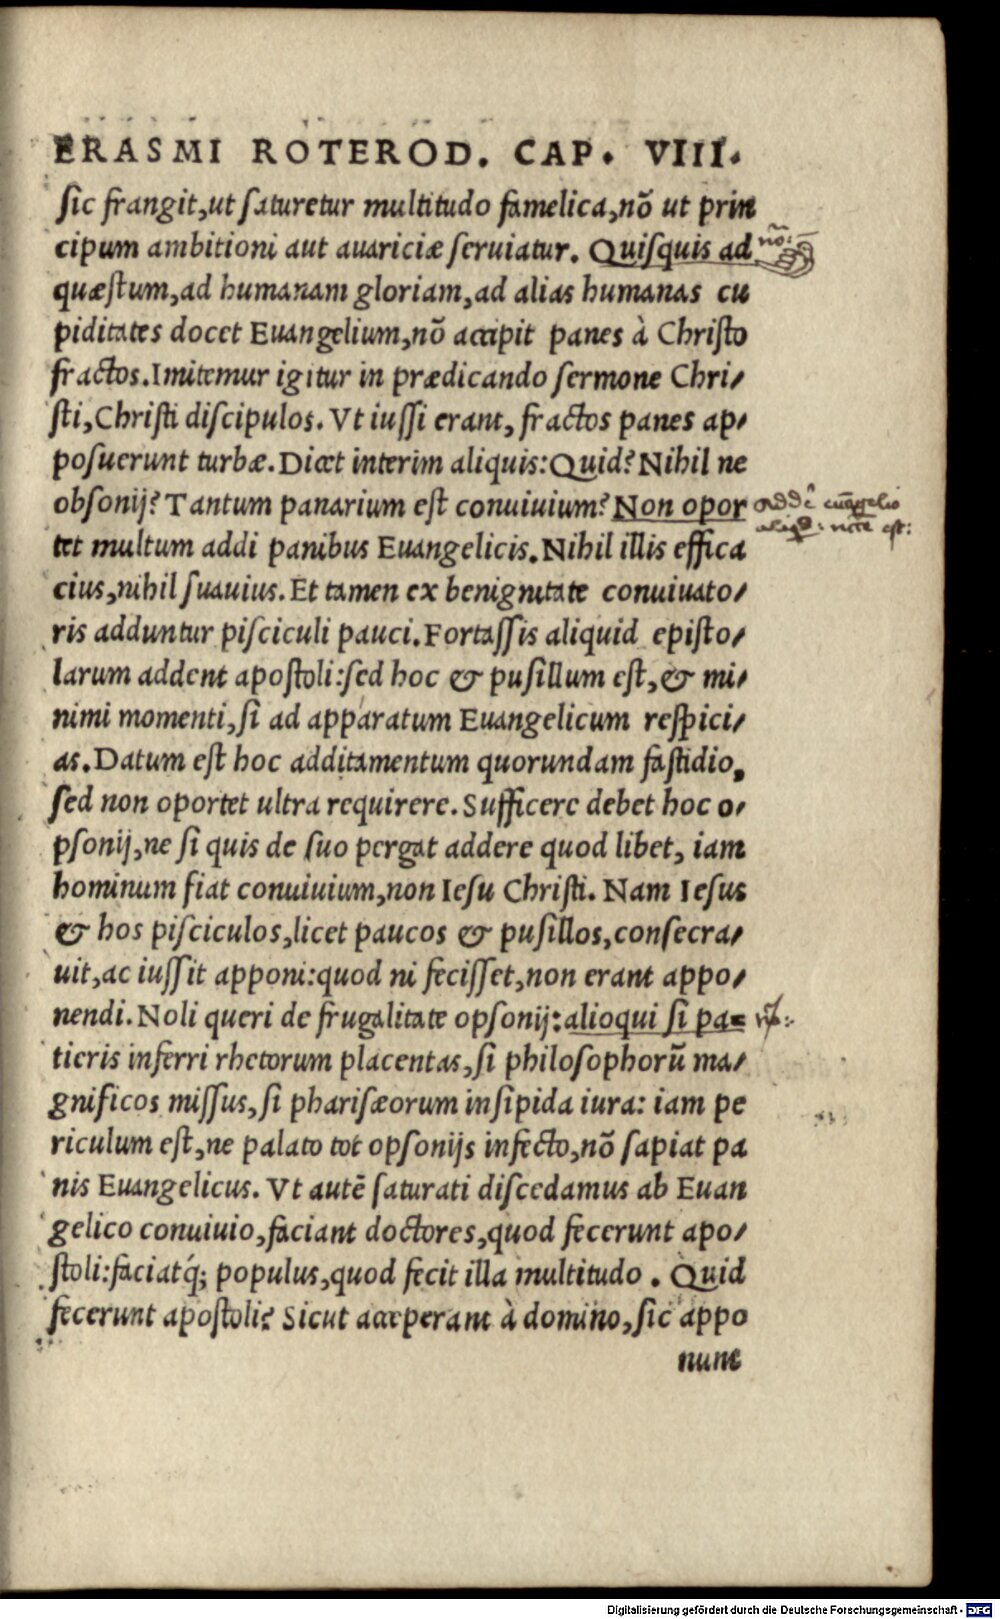 ERASMI ROTEROD. CAP. VIII.
sic frangit,ut saturetur multitudo famelica,nō ut prin
cipum ambitioni aut auariciæ seruiatur. Quisquis ad
quæstum,ad humanam gloriam,ad alias humanas cu
piditates docet Euangelium,nō accipit panes à Christo
fractos.Imitemur igitur in prædicando sermone Chri/
sti,Christi discipulos. Vt iussi erant, fractos panes ap/
posuerunt turbæ. Dicet interim aliquis: Quid? Nihil ne
obsonij? Tantum panarium est conuiuium? Non opor
tet multum addi panibus Euangelicis. Nihil illis effica
cius,nihil suauius. Et tamen ex benignitate conuiuato/
ris adduntur pisciculi pauci. Fortassis aliquid episto/
larum addent apostoli:sed hoc & pusillum est,& mi/
nimi momenti,si ad apparatum Euangelicum respici/
as. Datum est hoc additamentum quorundam fastidio,
sed non oportet ultra requirere. Sufficere debet hoc o/
psonij,ne si quis de suo pergat addere quod libet, iam
hominum fiat conuiuium,non Iesu Christi. Nam Iesus
& hos pisciculos,licet paucos & pusillos,consecra/
uit,ac iussit apponi:quod ni fecisset,non erant appo/
nendi. Noli queri de frugalitate opsonij:alioqui si pa=
tieris inferri rhetorum placentas,si philosophorū ma/
gnificos missus,si pharisæorum insipida iura: iam pe
riculum est,ne palato tot opsonijs infecto,nō sapiat pa
nis Euangelicus. Vt autē saturati discedamus ab Euan
gelico conuiuio,faciant doctores,quod fecerunt apo/
stoli:faciatq́; populus,quod fecit illa multitudo. Quid
fecerunt apostoli? Sicut acceperant à domino,sic appo
nunt
Digitalisierung gefördert durch die Deutsche Forschungsgemeinschaft - DFG